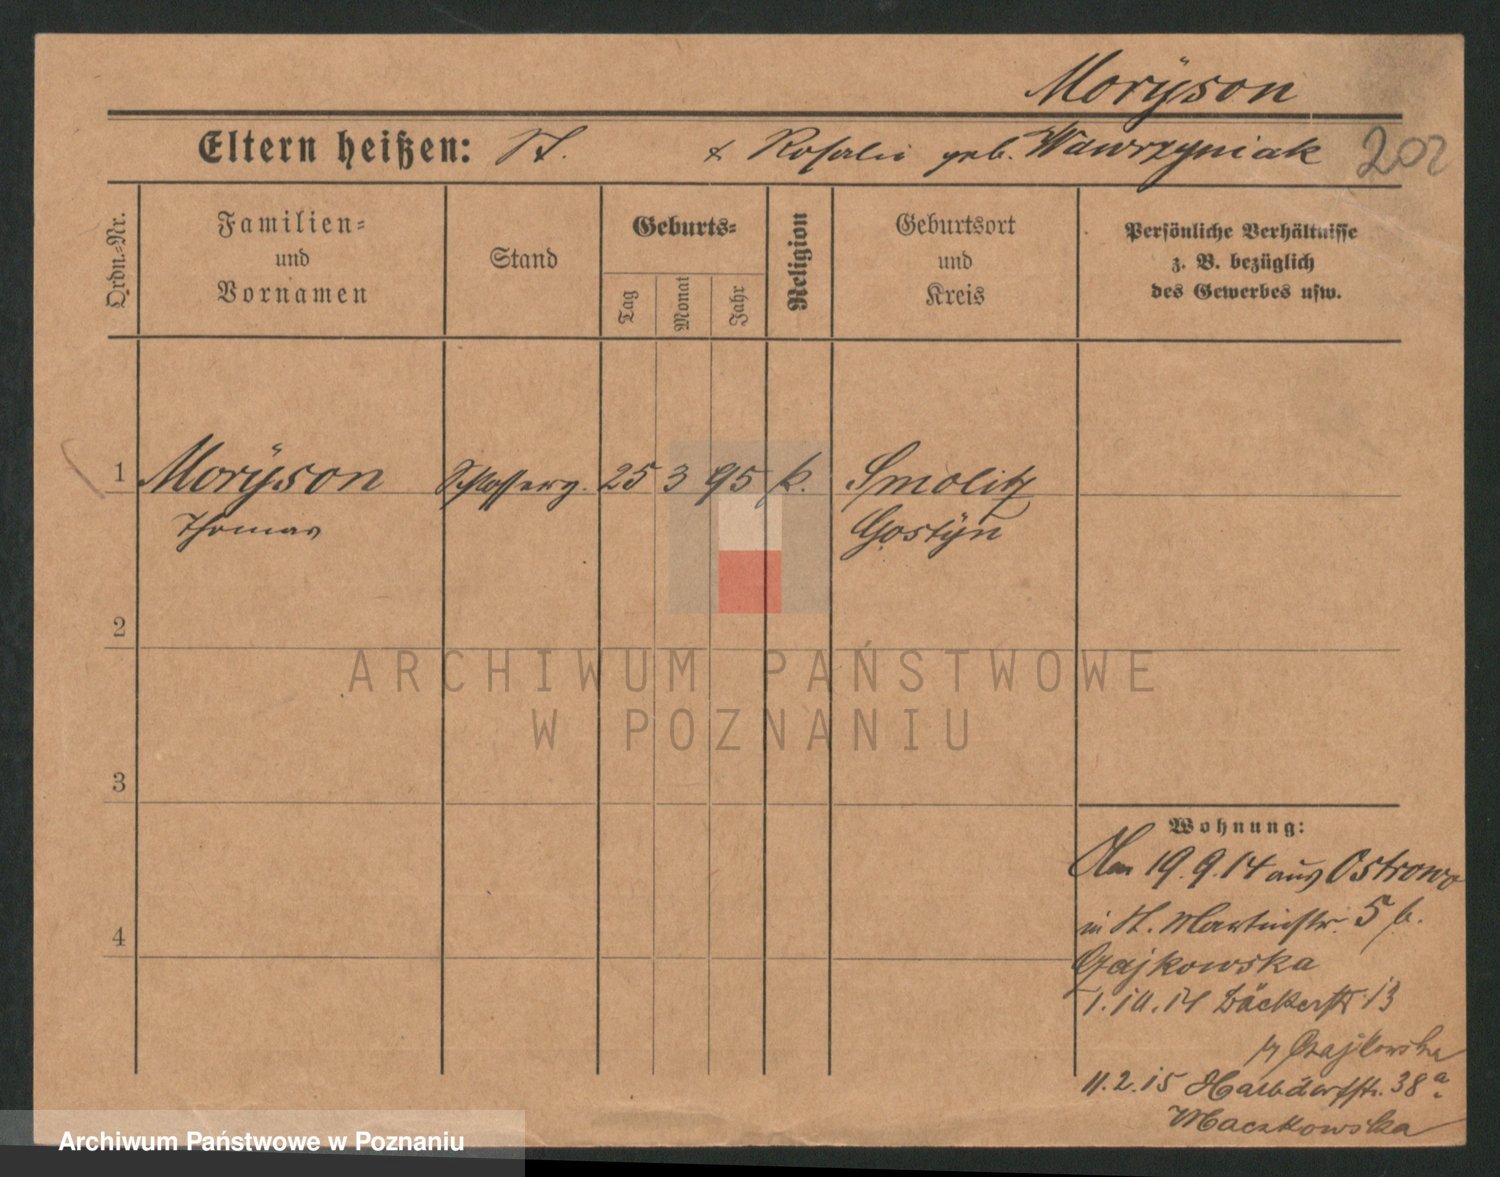 Morÿson
Eltern heißen: St. + Rosalie geb. Wawrzyniak 202
Ordn.-Nr.
Familien-
und
Vornamen
Stand
Geburts-
Tag
Monat
Jahr
Religion
Geburtsort
und
Kreis
Persönliche Verhältnisse
z. B. bezüglich
des Gewerbes usw.
1 Morÿson Schlosserg. 25 3 95 k. Smolitz
Thomas Gostÿn
2
3
4
Wohnung:
Am 19.9.14 aus Ostrowo
in St. Martinstr. 5 b.
Czajkowska
1.10.14 Bäckerstr 13
Czajkowska
11.2.15 Halbdorfstr. 38a.
Maczkowska
ARCHIWUM PAŃSTWOWE
W POZNANIU
Archiwum Państwowe w Poznaniu